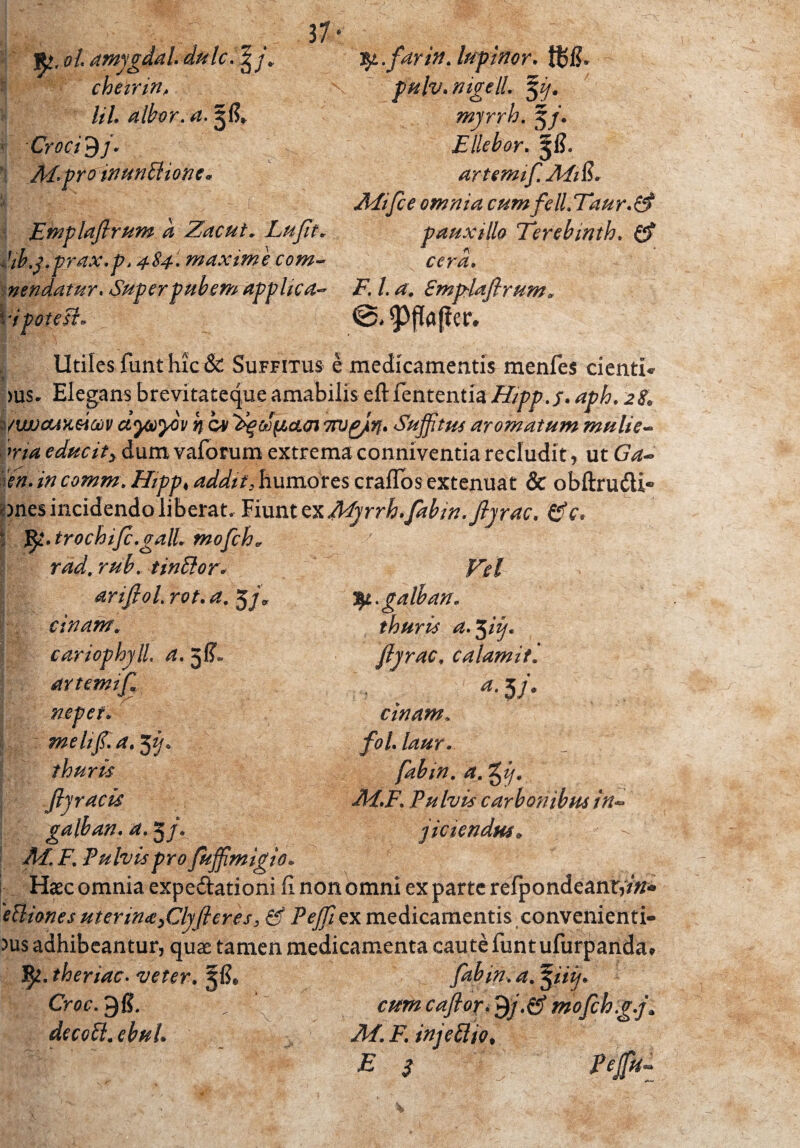 37.
℞. ol. amygdal. dulc. ℥j.
cheirin.
lil. albor. a. ℥ß.
Croci ℈j.
M. pro inunctione.
Emplastrum à Zacut. Lusit.
lib.3.prax.p. 484. maximè com-
mendatur. Super pubem applica-
ri potest.
℞. farin. lupinor. ℔ß.
pulv. nigell. ℥ij.
myrrh. ℥j.
Ellebor. ℥ß.
artemis. Miß.
Misce omnia cum fell. Taur. &
pauxillo Terebinth. &
cerâ.
F. l. a. Emplastrum.
S. Pflaster.
Utiles sunt hîc & Suffitus è medicamentis menses cienti-
bus. Elegans brevitateque amabilis est sententia Hipp. 5. aph. 28.
γυναικείων ἀγωγὸν ἡ ἐν ἀρώμασι πυρίη. Suffitus aromatum mulie-
bria educit, dum vasorum extrema conniventia recludit, ut Ga-
len. in comm. Hipp. addit, humores crassos extenuat & obstructi-
ones incidendo liberat. Fiunt ex Myrrh. sabin. styrac. &c.
℞. trochisc. gall. mosch.
rad. rub. tinctor.
aristol. rot. a. ʒj.
cinam.
cariophyll. a. ʒß.
artemis.
nepet.
melis. a. ʒij.
thuris
styracis
galban. a. ʒj.
M. F. Pulvis pro suffimigio.
Vel
℞. galban.
thuris a. ʒiij.
styrac. calamit.
a. ʒj.
cinam.
fol. laur.
sabin. a. ʒij.
M.F. Pulvis carbonibus in-
jiciendus.
Hæc omnia expectationi si non omni ex parte respondeant, in-
jectiones uterinæ, Clysteres, & Pessi ex medicamentis convenienti-
bus adhibeantur, quæ tamen medicamenta cautè sunt usurpanda.
℞. theriac. veter. ℥ß.
Croc. ℈ß.
decoct. ebul.
sabin. a. ℥iiij.
cum castor. ℈j. & mosch. g.j.
M. F. injectio.
E 3 Pessu-